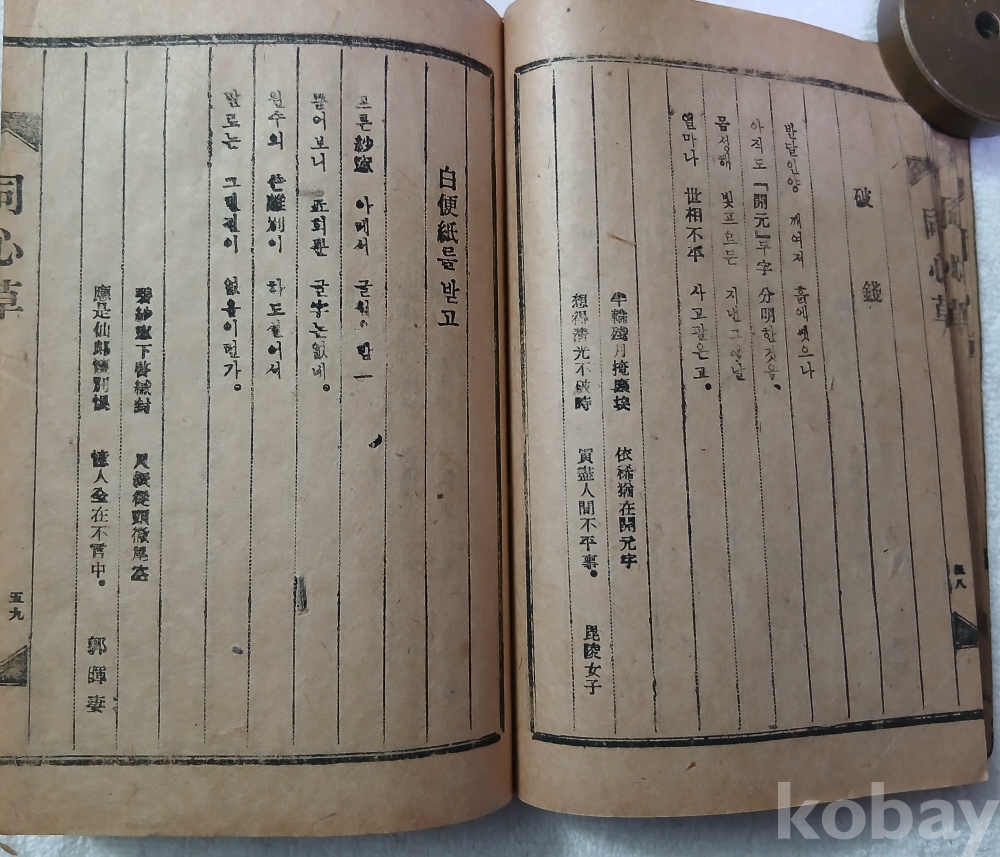 破錢
반달인양 깨여저 흙에씻으나
아직도『開元』두字 分明한것을、
몸성해 빛프르든 지낸그옛날
열마나 世相不平 사고팔은고。
半輪殘月掩塵埃 依稀猶在開元字
想得淸光不破時 買盡人間不平事。 毘陵女子
同心草
五八
白便紙를받고
프른紗窓 아에서 글월
뜯어보니 글字는없네。
원수의
말로는 없음이런가。
碧紗窓下啓緘封 尺紙從頭徹尾空
應是仙郞懷別恨 憶人全在不言中。 郭暉妻
同心草
五九
kobay